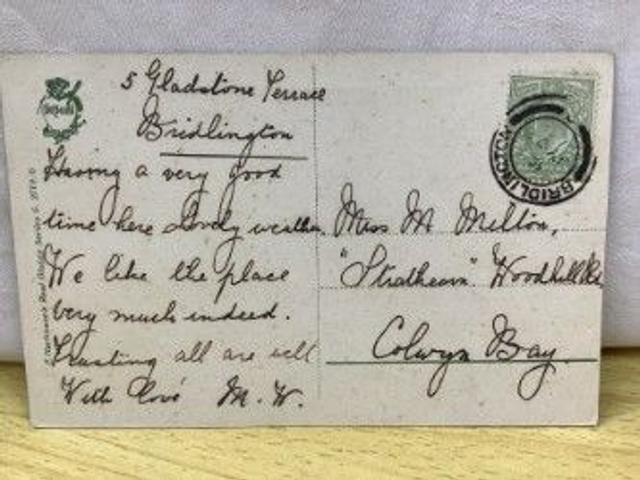 5 Gladstone Terrace
Bridlington
Having a very good
time here Lovely weather.
We like the place
very much indeed.
Trusting all are well
With love M.W.
Miss M Melton,
"Strathearn" Woodhill Rd
Colwyn Bay.
BRIDLINGTON